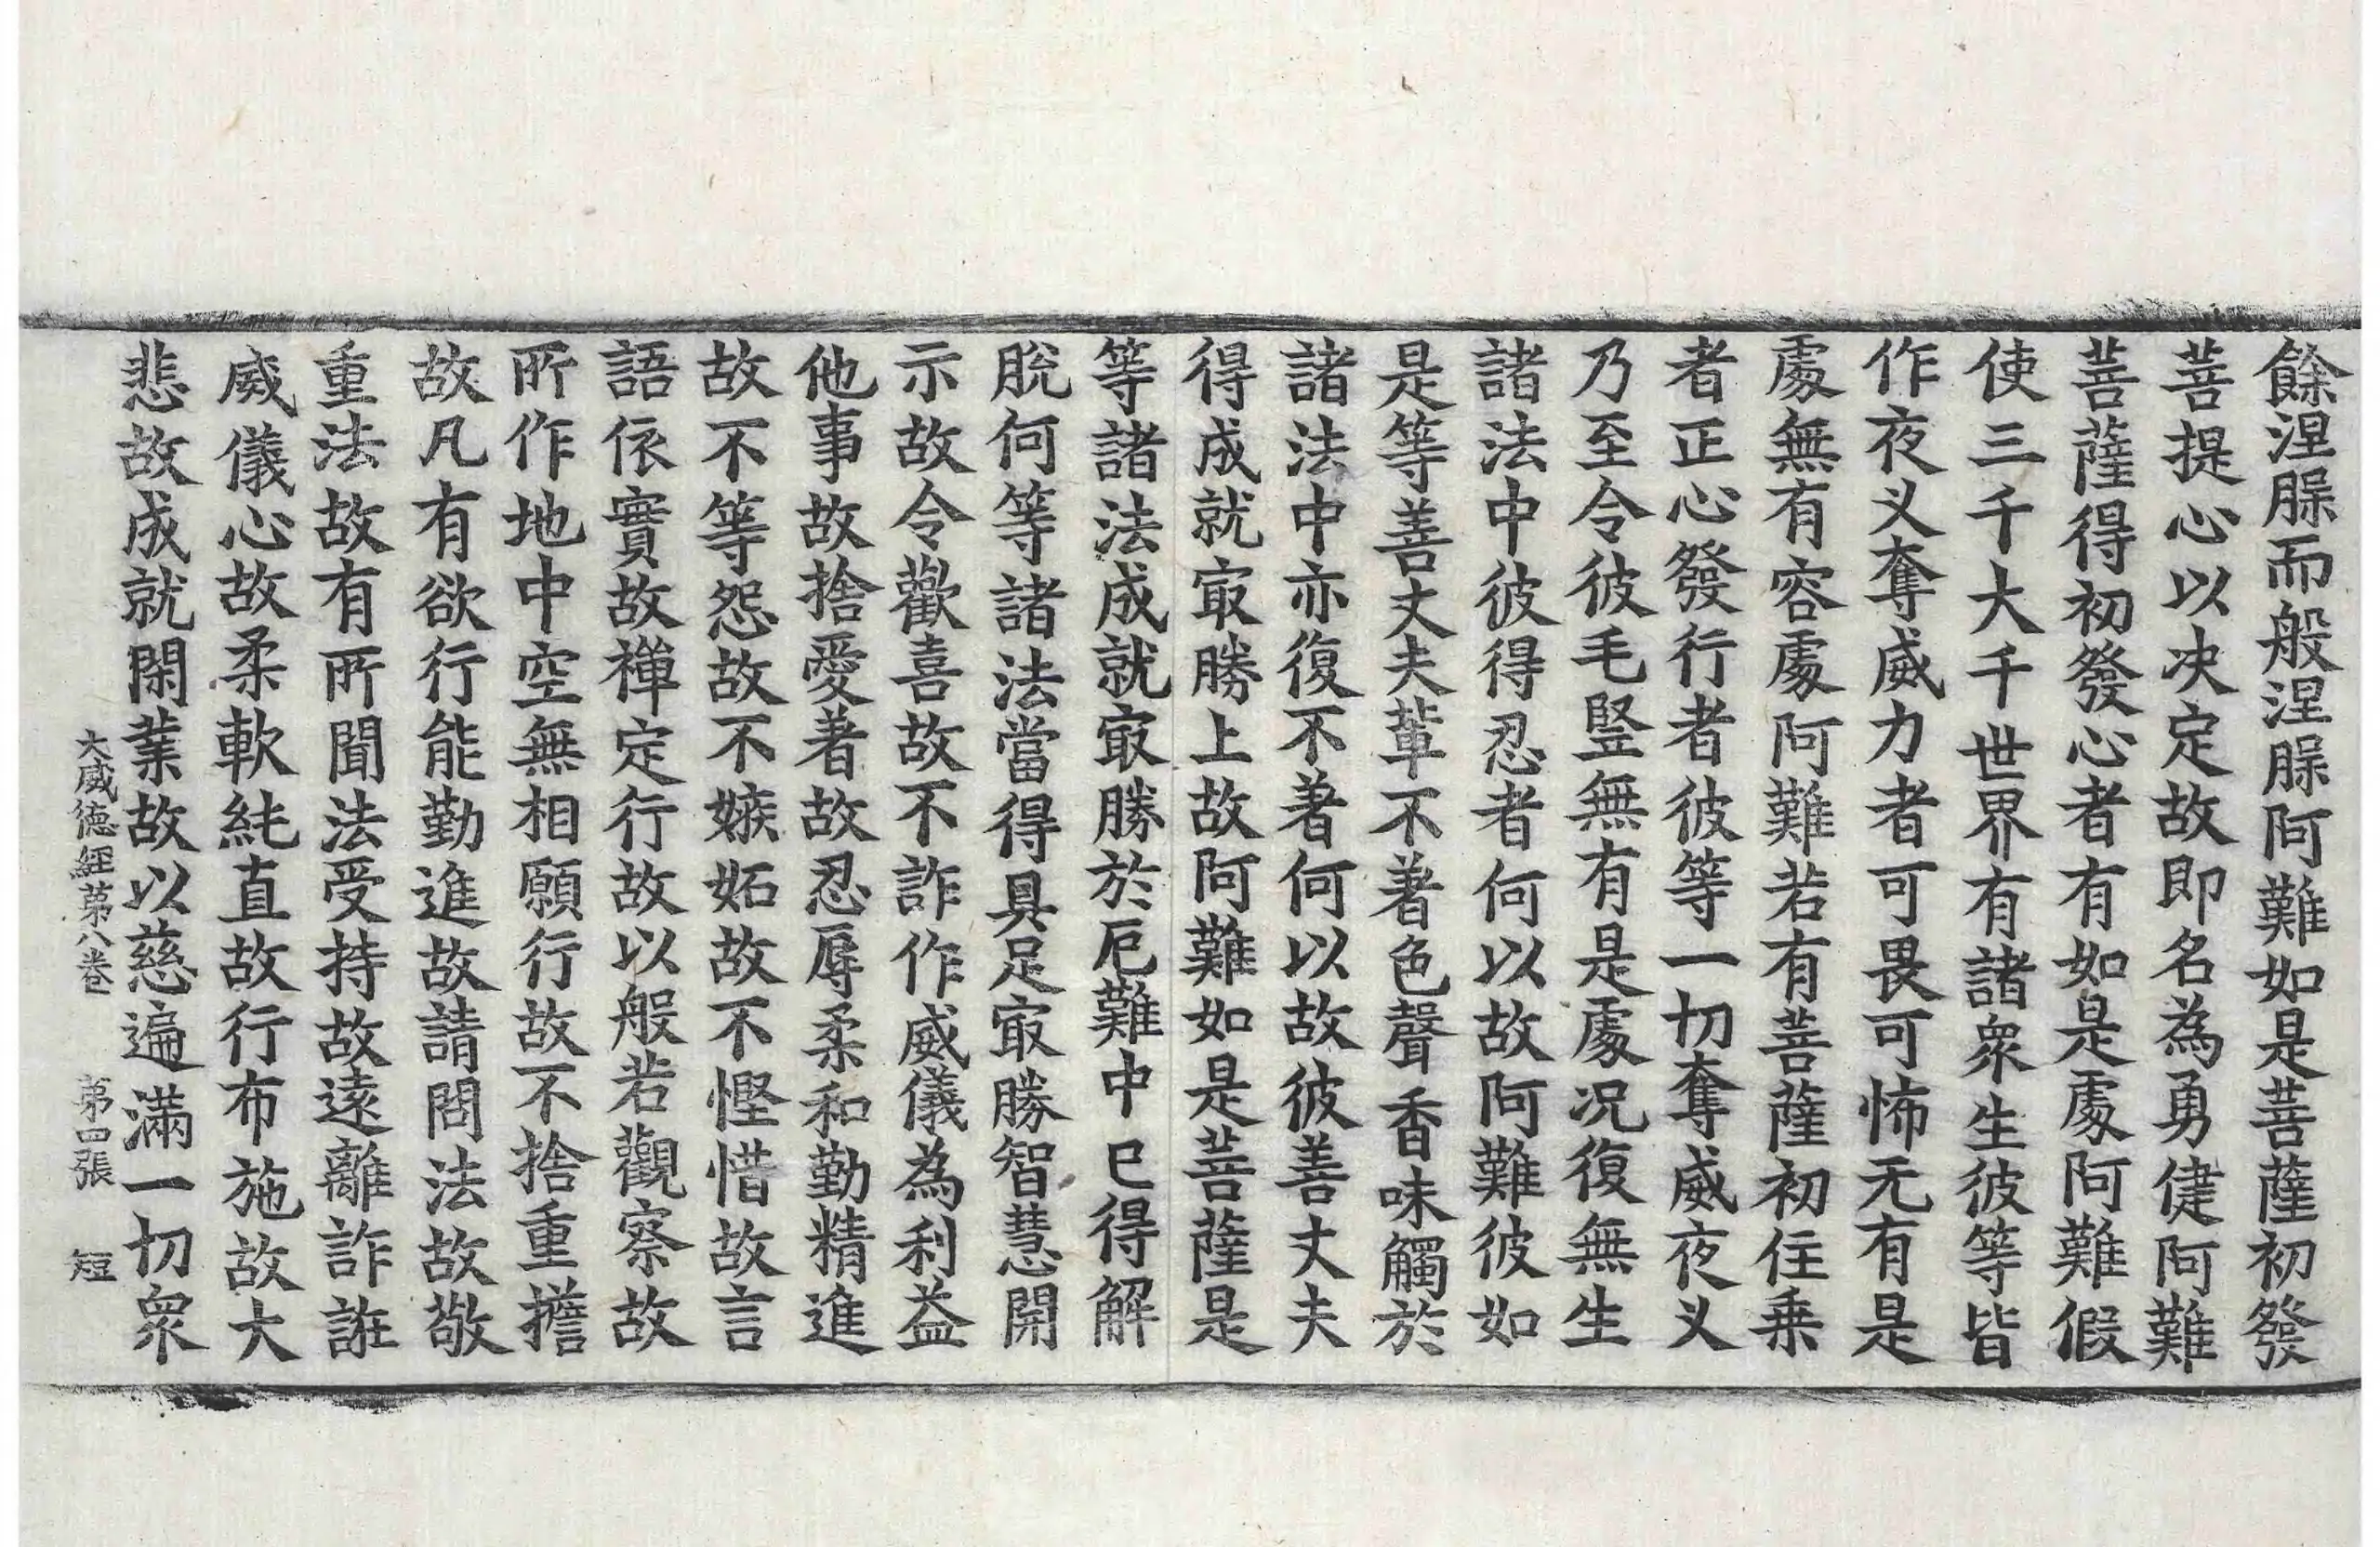 餘涅槃而般涅槃阿難如是菩薩初發
菩提心以决定故即名為勇健阿難
菩薩得初發心者有如是處阿難假
使三千大千世界有諸衆生彼等皆
作夜叉奪威力者可畏可怖无有是
處無有容處阿難若有菩薩初住乗
者正心發行者彼等一切奪威夜叉
乃至令彼毛竪無有是處况復無生
諸法中彼得忍者何以故阿難彼如
是等善丈夫輩不著色聲香味觸於
諸法中亦復不著何以故彼善丈夫
得成就㝡勝上故阿難如是菩薩是
等諸法成就㝡勝於厄難中已得解
脫何等諸法當得具足㝡勝智慧開
示故令歡喜故不詐作威儀為利益
他事故捨愛著故忍辱柔和勤精進
故不等怨故不嫉妬故不慳惜故言
語依實故禪定行故以般若觀察故
所作地中空無相願行故不捨重擔
故凡有欲行能勤進故請問法故敬
重法故有所聞法受持故遠離詐誑
威儀心故柔軟純直故行布施故大
悲故成就閑業故以慈遍滿一切衆
大威德經第八卷 第四張 短